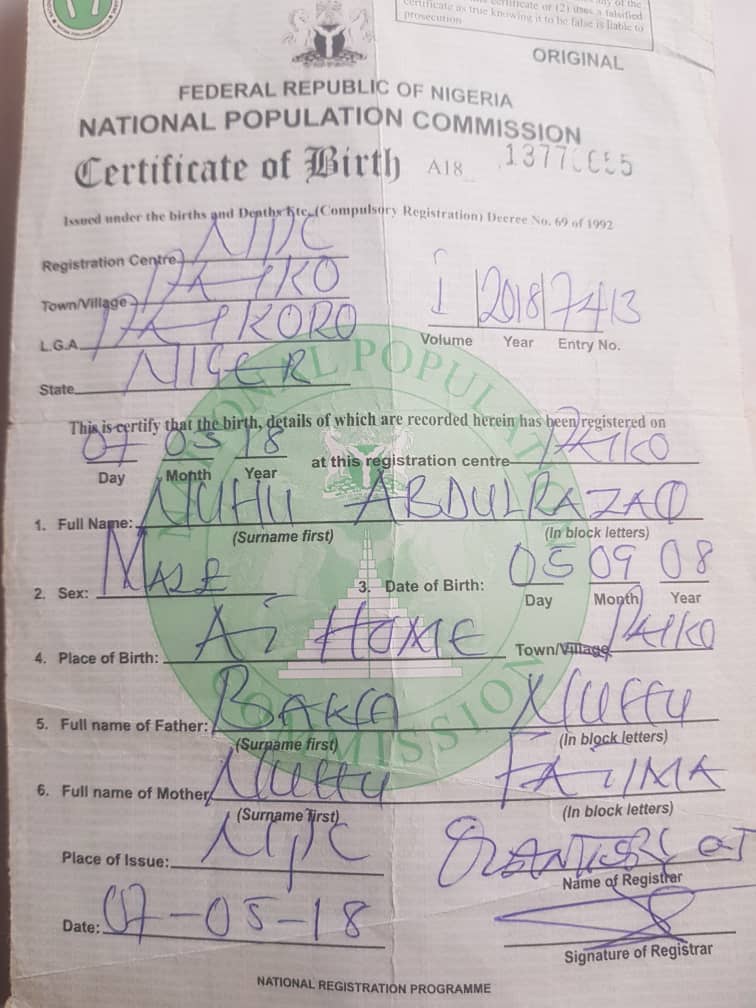 certificate or (2) uses a falsified
certificate as true knowing it to be false is liable to
prosecution
ORIGINAL
FEDERAL REPUBLIC OF NIGERIA
NATIONAL POPULATION COMMISSION
Certificate of Birth A18
Issued under the births and Deaths Etc, (Compulsory Registration) Decree No. 69 of 1992
Registration Centre
Town/Village
L.G.A.
State NIGER
1 2018 7413
Volume Year Entry No.
NATIONAL POPULATION COMMISSION
This is certify that the birth, details of which are recorded herein has been registered on
07 05 18 at this registration centre
Day Month Year
1. Full Name: NUHU ABDULRAZAQ
(Surname first) (In block letters)
2. Sex: MALE 3. Date of Birth: 05 09 08
Day Month Year
4. Place of Birth: AT HOME Town/Village
5. Full name of Father: NUHU
(Surname first) (In block letters)
6. Full name of Mother NUHU FATIMA
(Surname first) (In block letters)
Place of Issue:
Name of Registrar
Date: 07-05-18
Signature of Registrar
NATIONAL REGISTRATION PROGRAMME